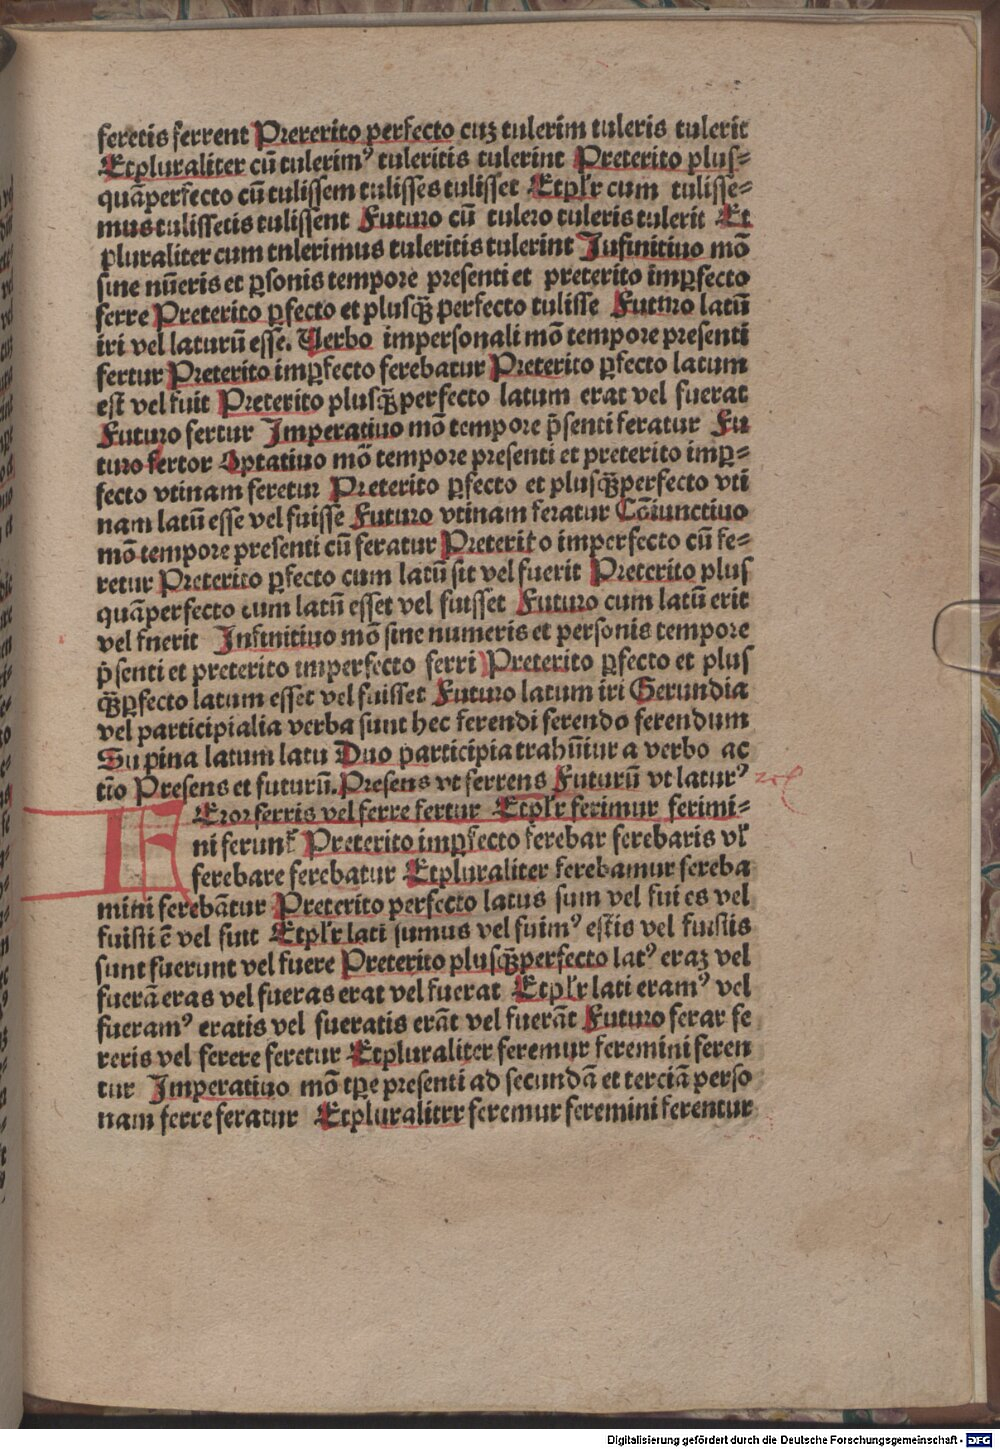 feretis ferrent Prererito perfecto cuꝫ tulerim tuleris tulerit
Etpluraliter cū tulerimꝰ tuleritis tulerint Preterito plus⸗
quāperfecto cū tulissem tulisses tulisset Etplr̄ cum tulisse⸗
mus tulissetis tulissent Futuro cū tulero tuleris tulerit Et
pluraliter cum tnlerimus tuleritis tulerint Iufinitiuo mō
sine nūeris et ꝑsonis tempore presenti et preterito imꝑfecto
ferre Preterito ꝑfecto et plusqꝫ̄ perfecto tulisse Futuro latū
iri vel laturū esse. Verbo impersonali mō tempore presenti
fertur Preterito imꝑfecto ferebatur Preterito ꝑfecto latum
est vel fuit Preterito plusqꝫ̄ perfecto latum erat vel fuerat
Futuro fertur Imperatiuo mō tempore p̄senti feratur Fu
turo fertor Optatiuo mō tempore presenti et preterito imꝑ⸗
fecto vtinam feretur Preterito ꝑfecto et plusqꝫ̄perfecto vti
nam latū esse vel fuisse Futuro vtinam feratur Cōiunctiuo
mō tempore presenti cū feratur Preterito imperfecto cū fe⸗
retur Preterito ꝑfecto cum latū sit vel fuerit Preterito plus
quāperfecto cum latū esset vel fuisset Futuro cum latū erit
vel fnerit Infinitiuo mō sine numeris et personis tempore
p̄senti et preterito imperfecto ferri Preterito ꝑfecto et plus
qꝫ̄ꝑfecto latum esset vel fuisset Futuro latum iri Gerundia
vel participialia verba sunt hec ferendi ferendo ferendum
Supina latum latu Duo participia trahūtur a verbo ac
tio Presens et futurū. Presens vt ferrens Futurū vt laturꝰ
F Eror ferris vel ferre fertur Etplr̄ ferimur ferimi⸗
ni ferunt̄ Preterito imꝑfecto ferebar ferebaris vl̄
ferebare ferebatur Etpluraliter ferebamur fereba
mini ferebātur Preterito perfecto latus sum vel fui es vel
fuisti ē vel fuit Etplr̄ lati sumus vel fuimꝰ estis vel fuistis
sunt fuerunt vel fuere Preterito plusqꝫ̄perfecto latꝰ eraꝫ vel
fuerā eras vel fueras erat vel fuerat Etplr̄ lati eramꝰ vel
fueramꝰ eratis vel fueratis erāt vel fuerāt Futuro ferar fe
reris vel ferere feretur Etpluraliter feremur feremini feren
tur Imperatiuo mō tꝑe presenti ad secundā et terciā perso
nam ferre feratur Etpluraliter feremur feremini ferentur
Digitalisierung gefördert durch die Deutsche Forschungsgemeinschaft - DFG